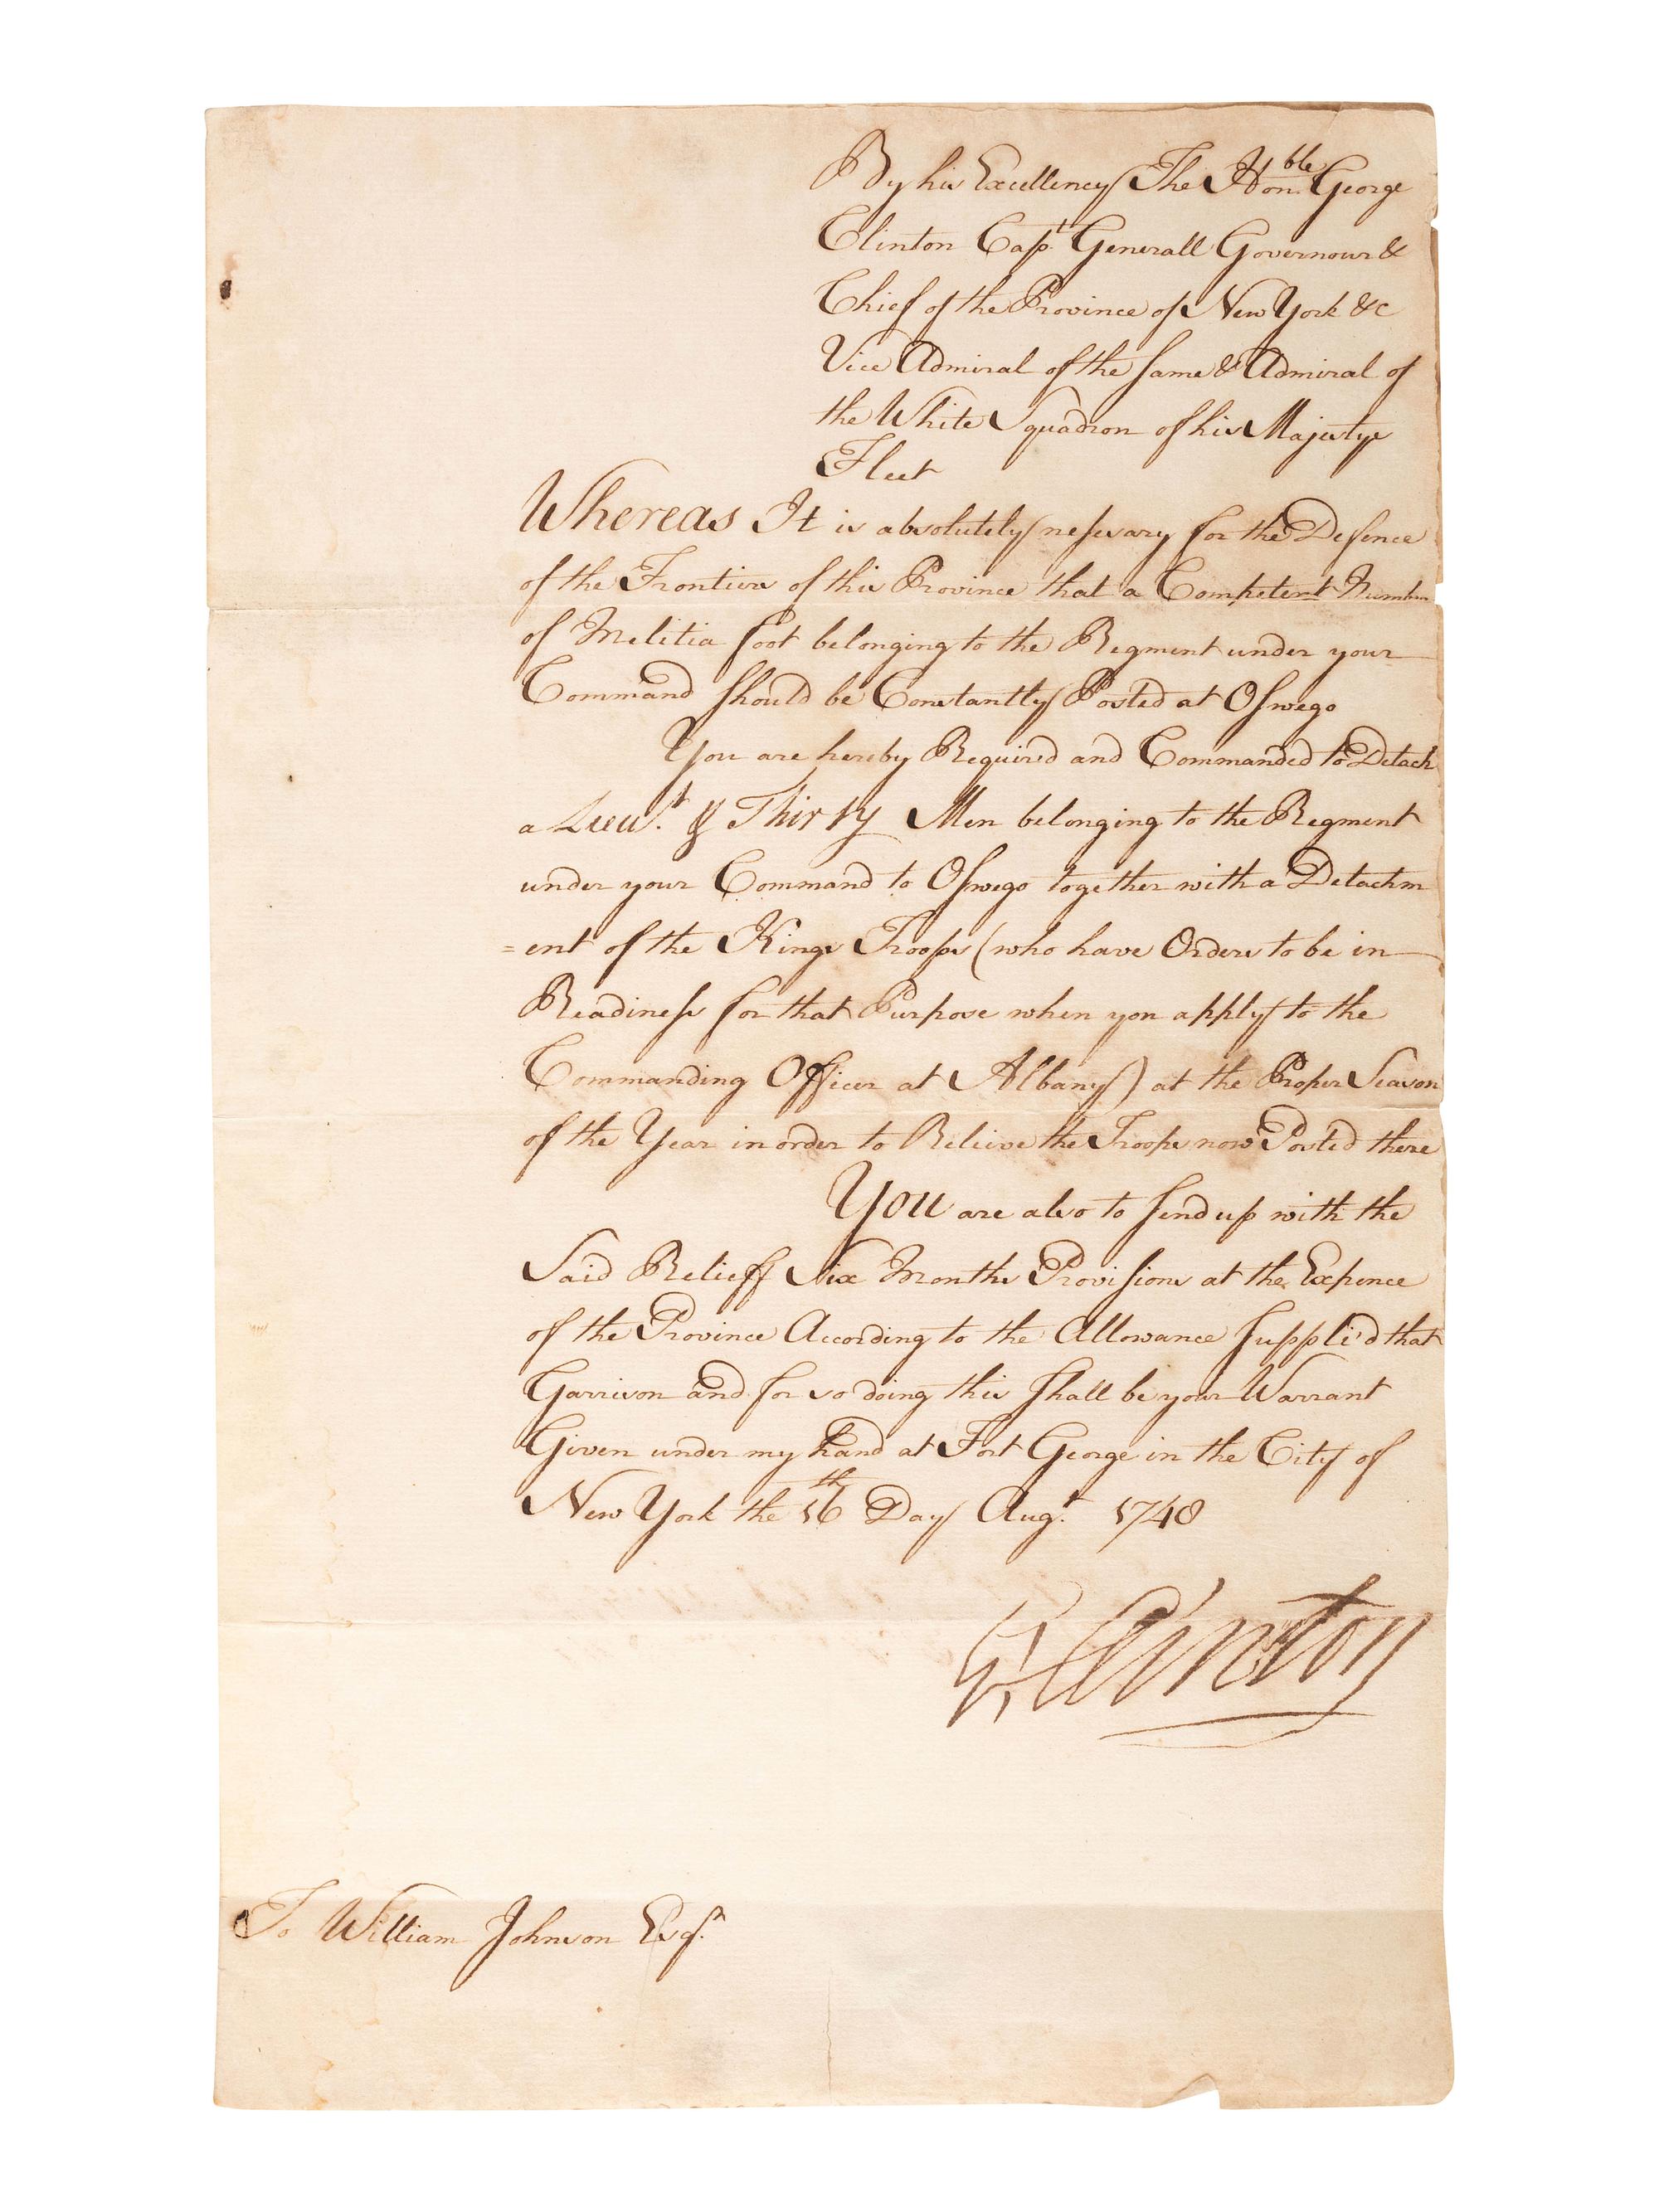 By his Excellency The Hon.ble George
Clinton Capt. Generall Governour &
Chief of the Province of New York &c
Vice Admiral of the same & Admiral of
the White Squadron of his Majestys
Fleet
Whereas It is absolutely nessesary for the Defence
of the Frontiers of this Province that a Competent Number
of Melitia foot belonging to the Regment under your
Command should be Constantly Posted at Oswego
You are hereby Requir'd and Commanded to Detach
a Lieut. & Thirty Men belonging to the Regment
under your Command to Oswego together with a Detachm
=ent of the Kings Troops (who have Orders to be in
Readiness for that Purpose when you apply to the
Commanding Officer at Albany) at the Proper Season
of the Year in order to Relieve the Troops now Posted there
You are also to send up with the
Said Relieff Six Months Provisions at the Expence
of the Province According to the Allowance suppli'd that
Garrison and for so doing this shall be your Warrant
Given under my hand at Fort George in the City of
New York the 16th Day Augt. 1748
G Clinton
To William Johnson Esqr.